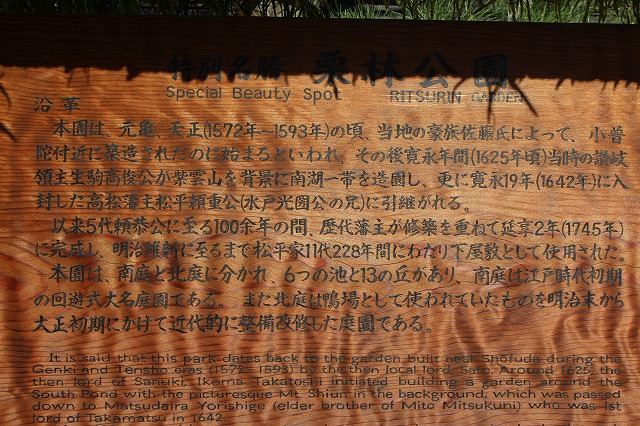 特別名勝 栗林公園
Special Beauty Spot RITSURIN GARDEN
沿革
本園は、元亀、天正(1572年~1593年)の頃、当地の豪族佐藤氏によって、小普
陀付近に築造されたのに始まるといわれ、その後寛永年間(1625年頃)当時の讃岐
領主生駒高俊公が紫雲山を背景に南湖一帯を造園し、更に寛永19年(1642年)に入
封した高松藩主松平頼重公(水戸光圀公の兄)に引継がれる。
以来5代頼恭公に至る100余年の間、歴代藩主が修築を重ねて延享2年(1745年)
に完成し、明治維新に至るまで松平家11代228年間にわたり下屋敷として使用された。
本園は、南庭と北庭に分かれ、6つの池と13の丘があり、南庭は江戸時代初期
の回遊式大名庭園である。また北庭は鴨場として使われていたものを明治末から
大正初期にかけて近代的に整備改修した庭園である。
It is said that this park dates back to the garden built near Shofuda during the
Genki and Tensho eras (1572-1593) by the then local lord, Sato. Around 1625, the
then lord of Sanuki, Ikoma Takatoshi initiated building a garden around the
South Pond with the picturesque Mt. Shiun in the background, which was passed
down to Matsudaira Yorishige (elder brother of Mito Mitsukuni) who was 1st
lord of Takamatsu in 1642.